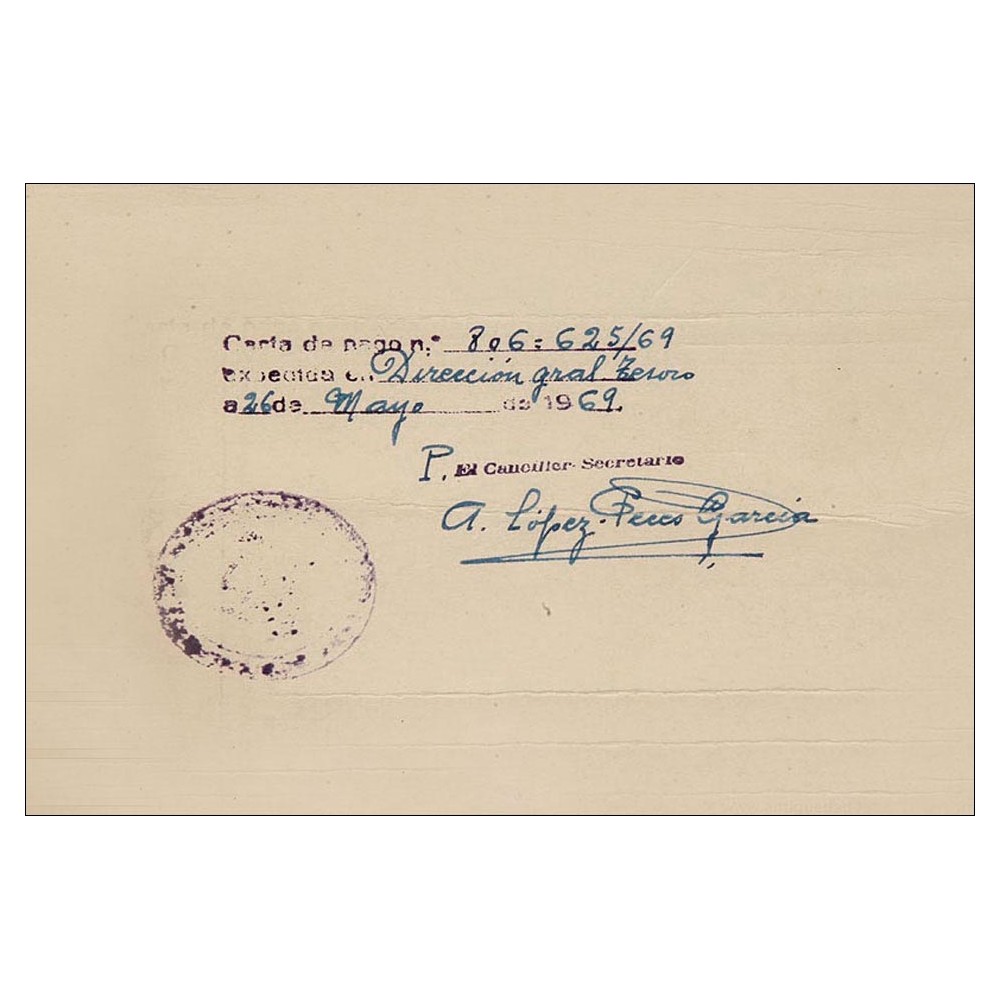 Carta de pago n.º 806=625/69
expedida en Dirección gral Tesoro
a 26 de Mayo de 1969.
P. El Canciller-Secretario
A. López-Peces García